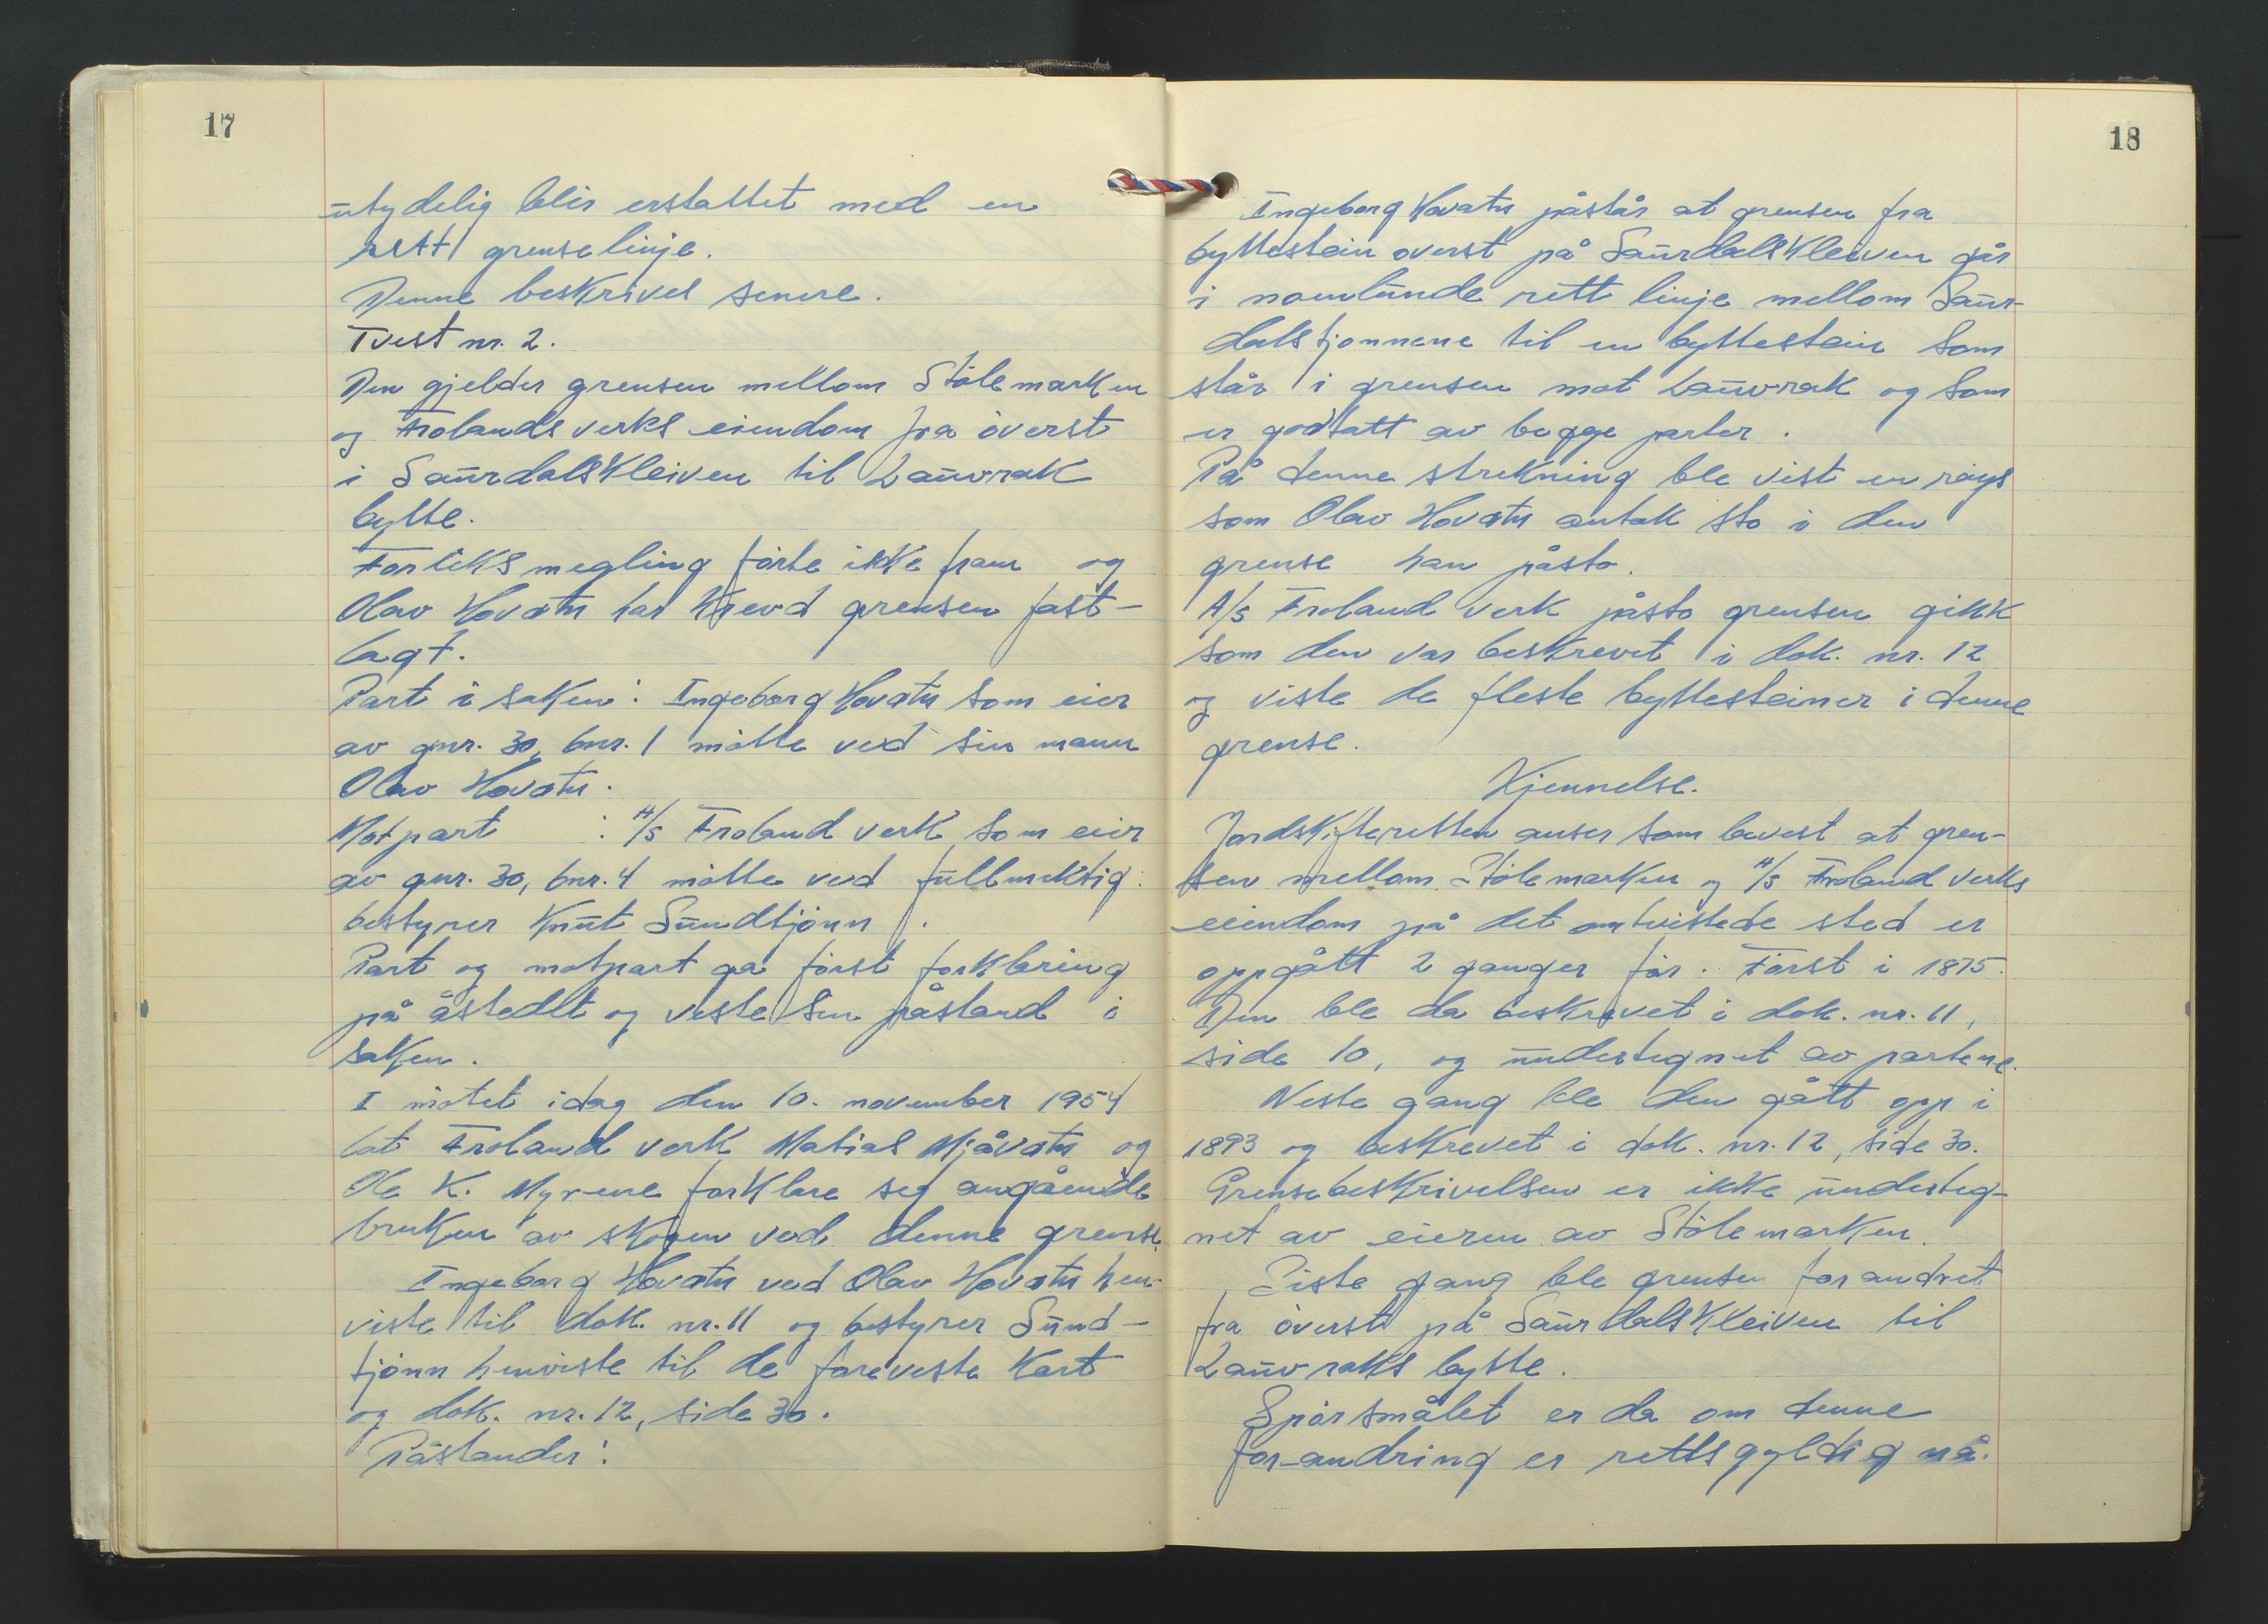 17
utydelig blir erstattet med en
rett grenselinje.
Denne beskrives senere.
Tvist nr. 2.
Den gjelder grensen mellom Stölemarken
og Frolands verks eiendom fra överst
i Saurdalskleiven til Lauvrak
bytte.
Forliksmegling förte ikke fram og
Olav Hovatn har krevd grensen fast-
lagt.
Part i saken: Ingeborg Hovatn som eier
av gnr. 30, bnr. 1 mötte ved sin mann
Olav Hovatn.
Motpart : A/S Froland verk som eier
av gnr. 30, bnr. 4 mötte ved fullmektig:
bestyrer Knut Sundtjönn.
Part og motpart ga först forklaring
på åstedet og viste sin påstand i
saken.
I mötet idag den 10. november 1954
lot Froland verk Matias Mjåvatn og
Ole K. Myrene forklare seg angående
bruken av skogen ved denne grense.
Ingeborg Hovatn ved Olav Hovatn hen-
viste til dok. nr. 11 og bestyrer Sund-
tjönn henviste til de foreviste kart
og dok. nr. 12, side 30.
Påstander:
18
Ingeborg Hovatn påstår at grensen fra
byttestein överst på Saurdalskleiven går
i noenlunde rett linje mellom Saur-
dalstjönnene til en byttestein som
står i grensen mot Lauvrak og som
er godtatt av begge parter.
På denne strekning ble vist en röys
som Olav Hovatn antok sto i den
grense han påsto.
A/S Froland verk påsto grensen gikk
som den var beskrevet i dok. nr. 12
og viste de fleste byttesteiner i denne
grense.
Kjennelse.
Jordskifteretten anser som bevist at gren-
sen mellom Stölemarken og A/S Froland verks
eiendom på det omtvistede sted er
oppgått 2 ganger för. Först i 1875.
Den ble da beskrevet i dok. nr. 11,
side 10, og undertegnet av partene.
Neste gang ble den gått opp i
1893 og beskrevet i dok. nr. 12, side 30.
Grensebeskrivelsen er ikke underteg-
net av eieren av Stölemarken.
Siste gang ble grensen forandret
fra överst på Saurdalskleiven til
Lauvraks bytte.
Spörsmålet er da om denne
for-andring er rettsgyldig nå.